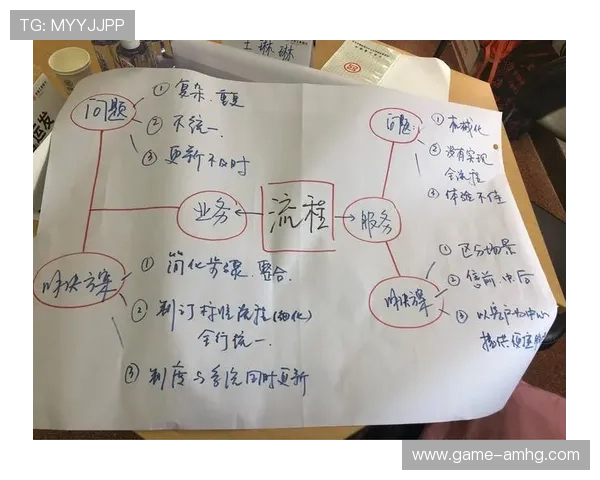 TG: MYYJJPP
王琳琳
问题
① 复杂、重复
② 不统一
③ 更新不及时
业务
流程
服务
解决方案
① 简化步骤、整合
② 制订标准流程(细化)
全行统一
③ 制度与系统同时更新
问题:
① 机械化
② 没有实现
全流程
③ 体验不佳
解决方案
① 区分场景
② 售前、中、后
③ 以客户为中心
提供便捷服
www.game-amhg.com